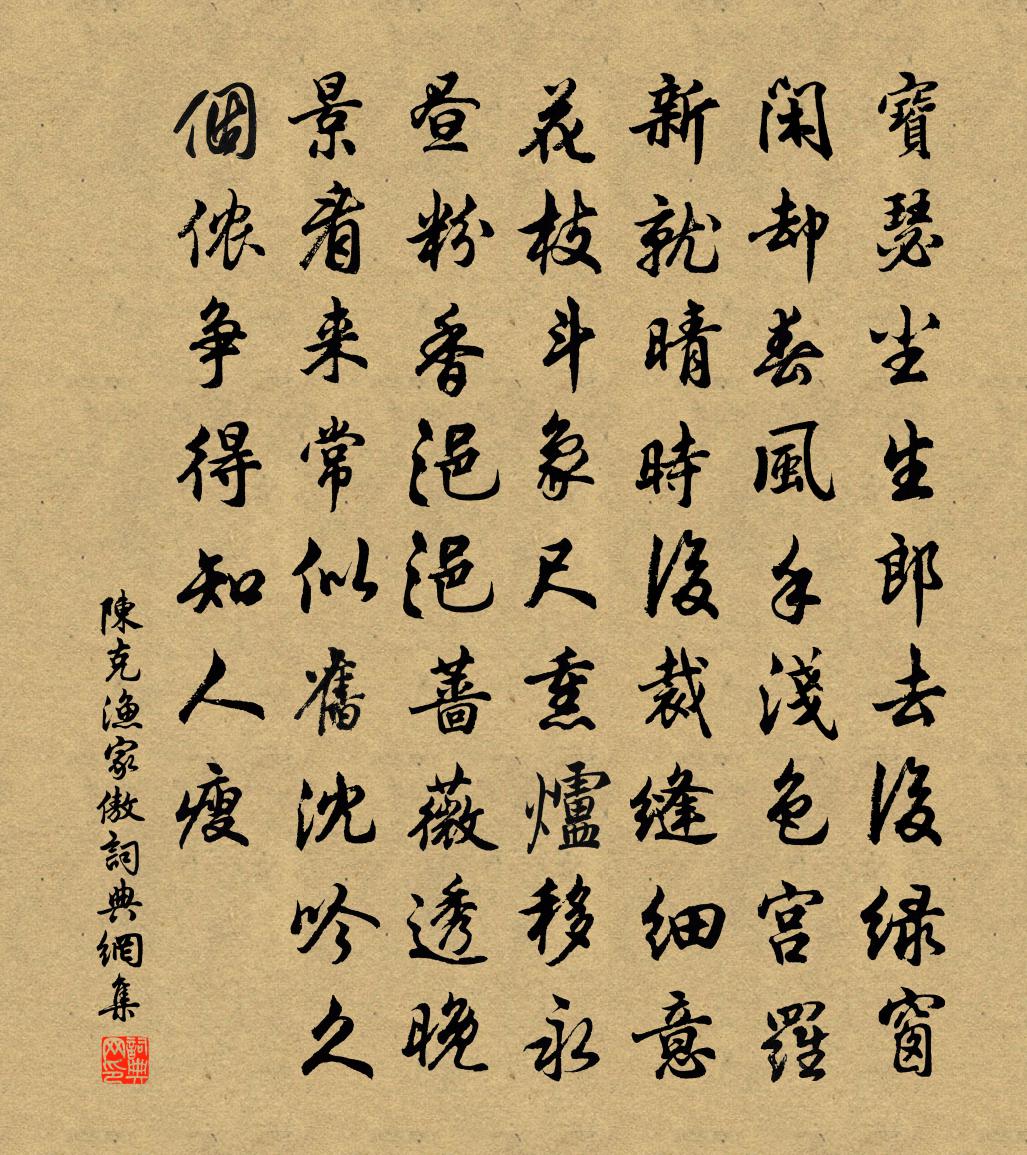 寶瑟尘生郎去後绿窗
闲却春風手淺色宫羅
新就晴時後裁縫细意
花枝斗象尺熏爐移永
昼粉香浥浥薔薇透晚
景看来常似舊沈吟久
個侬争得知人瘦
陳克漁家傲詞典網集
詞典网印